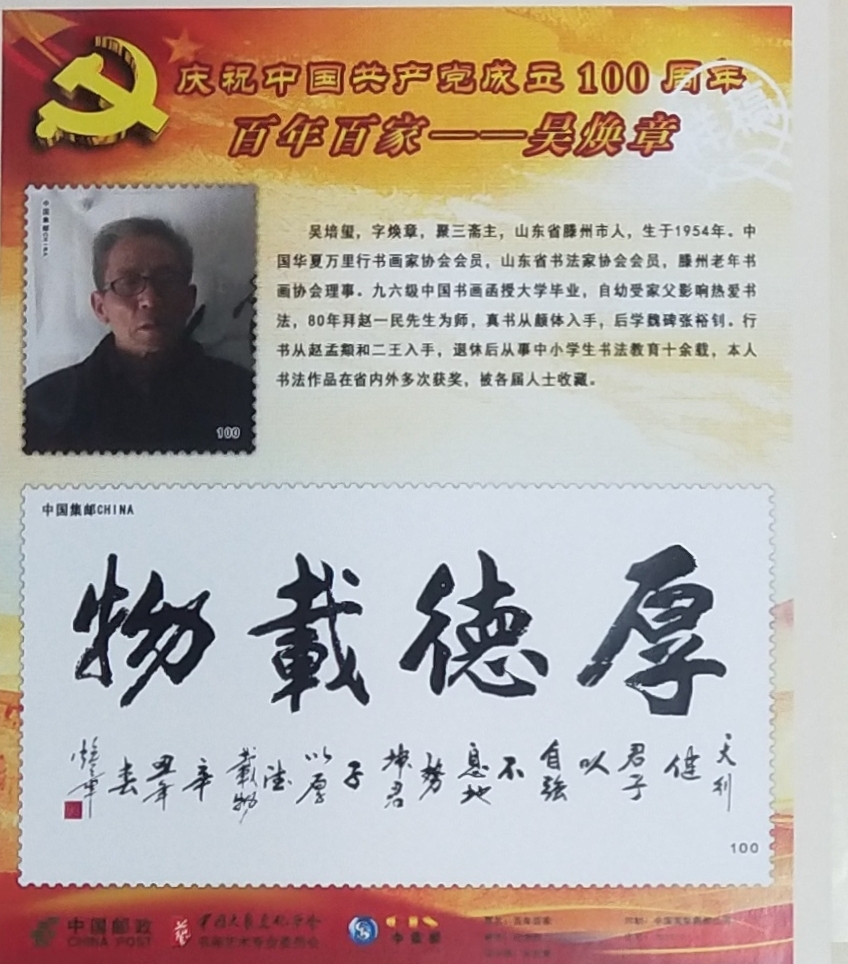 庆祝中国共产党成立100周年
百年百家——吴焕章
中国集邮CHINA
100
吴培玺，字焕章，聚三斋主，山东省滕州市人，生于1954年。中
国华夏万里行书画家协会会员，山东省书法家协会会员，滕州老年书
画协会理事。九六级中国书画函授大学毕业，自幼受家父影响热爱书
法，80年拜赵一民先生为师，真书从颜体入手，后学魏碑张裕钊。行
书从赵孟頫和二王入手，退休后从事中小学生书法教育十余载，本人
书法作品在省内外多次获奖，被各届人士收藏。
中国集邮CHINA
厚德載物
天利
健
君子
以
自強
不
息地
势
坤君
子
以厚
德
載物
辛
丑年
春
焕章
100
中国邮政
CHINA POST